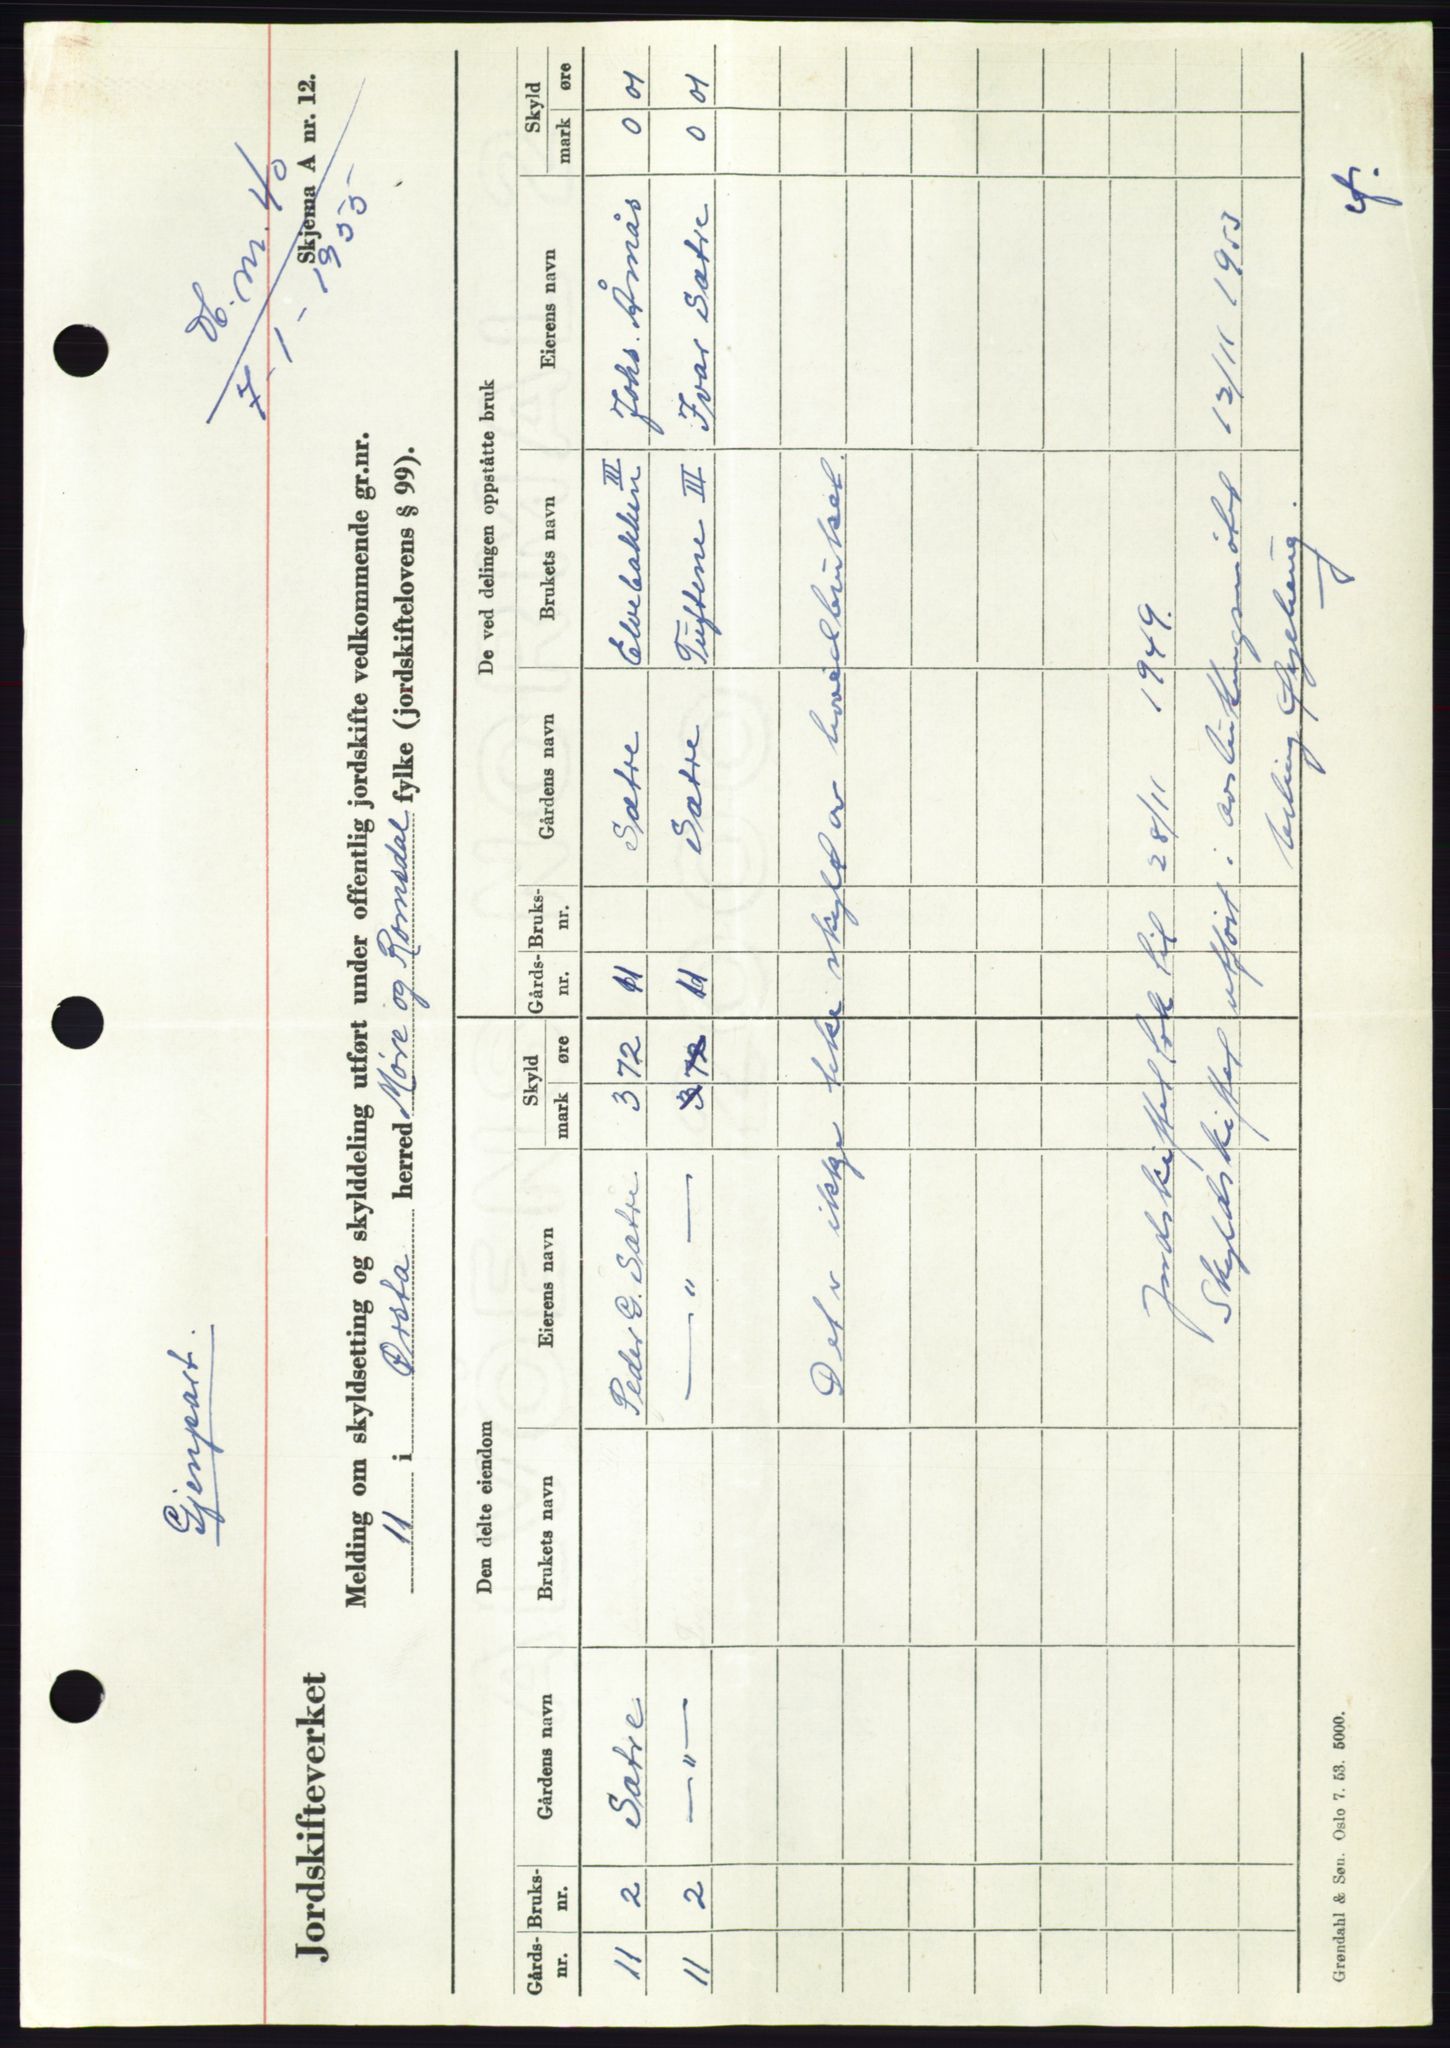 Gjenpart.
Db. nr. 40
7 - 1 - 1955
Jordskifteverket
Skjema A nr. 12.
Melding om skyldsetting og skylddeling utført under offentlig jordskifte vedkommende gr.nr.
11 i Ørsta herred Møre og Romsdal fylke (jordskiftelovens § 99).
Den delte eiendom De ved delingen oppståtte bruk
Gårds-nr. Bruks-nr. Gårdens navn Brukets navn Eierens navn Skyld mark øre Gårds-nr. Bruks-nr. Gårdens navn Brukets navn Eierens navn Skyld mark øre
11 2 Sætre Peder E. Sætre 3 72 11 Sætre Elvebakken III Johs. Åmås 0 01
11 2 —"— —"— 3 72 11 Sætre Tuftene III Ivar Sætre 0 01
Det v ikkje teke skyld av hovedbruket.
Jordskiftet tok til 28/11 1949.
Skyldskiftet utført i avslutningsmøtet 12/11 1953
Grøndahl & Søn. Oslo 7. 53. 5000.